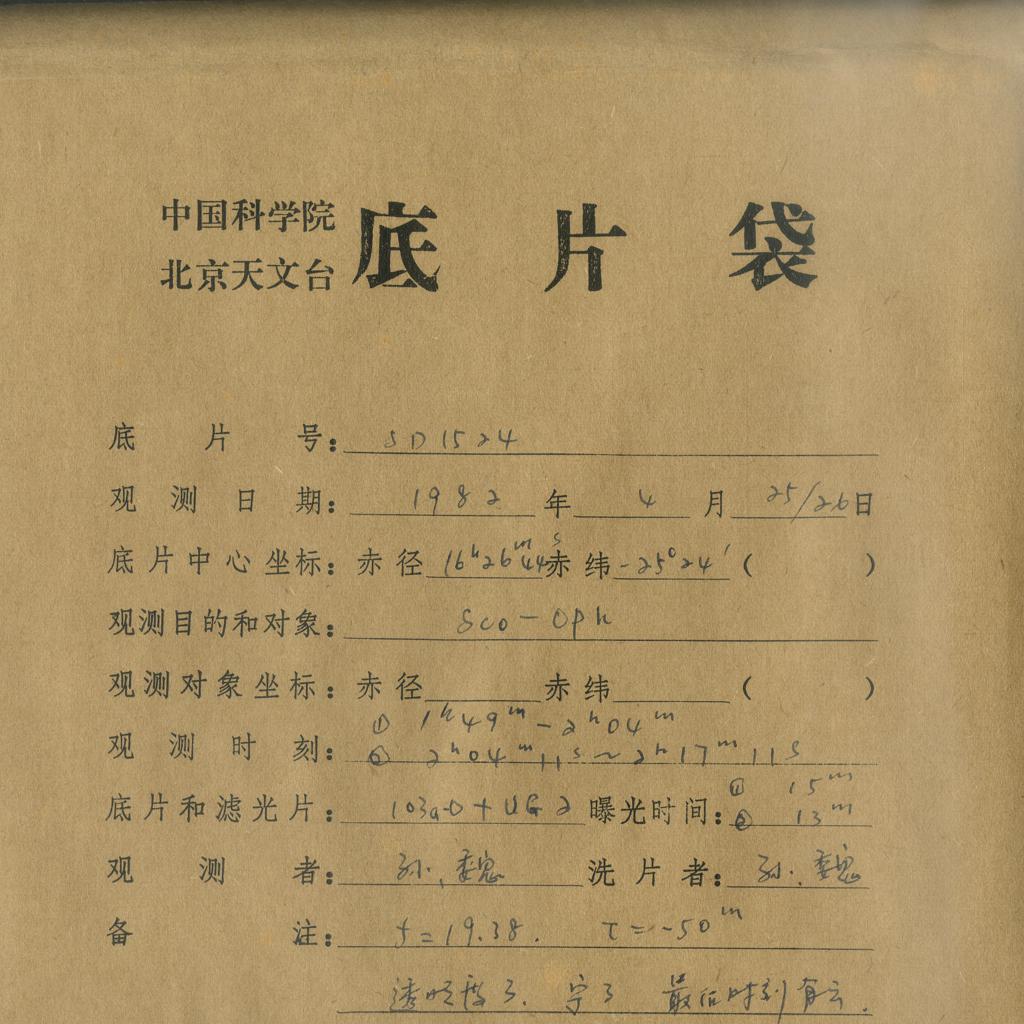 中国科学院
北京天文台 底片袋
底片号: SD1524
观测日期: 1982年4月25/26日
底片中心坐标: 赤径 16h26m44s 赤纬 -25°24′ ( )
观测目的和对象: Sco-Oph
观测对象坐标: 赤径 赤纬 ( )
① 1h49m-2h04m
观测时刻: ② 2h04m11s~2h17m11s
① 15m
底片和滤光片: 103a-O+UG2 曝光时间: ② 13m
观测者: 孙,魏 洗片者: 孙,魏
备注: f=19.38. τ=-50m
透明度3. 宁3 最后时刻有云.